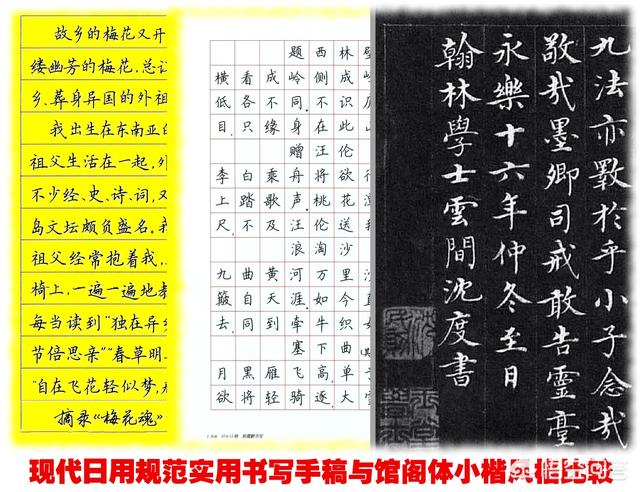 故乡的梅花又开
缕幽芳的梅花，总
乡、葬身异国的外祖
我出生在东南亚的
祖父生活在一起，外
不少经、史、诗、词，又
岛文坛颇负盛名。我
祖父经常抱着我，
椅上，一遍一遍地教
每当读到“独在异乡
节倍思亲”“春草明
“自在飞花轻似梦，
摘录“梅花魂”
题西林壁
横看成岭侧成
低各不同.不识
目.只缘身在此
赠汪伦
李白乘舟将欲
上踏歌声.桃花
尺.不及汪伦送
浪淘沙
九曲黄河万里沙
簸自天涯.如今直
去.同到牵牛织
塞下曲
月黑雁飞高.单于
欲将轻骑逐.大雪
九法亦斁於乎小子念哉
敬哉墨卿司戒敢告靈臺
永樂十六年仲冬至日
翰林學士雲間沈度書
现代日用规范实用书写手稿与馆阁体小楷
悟空问答